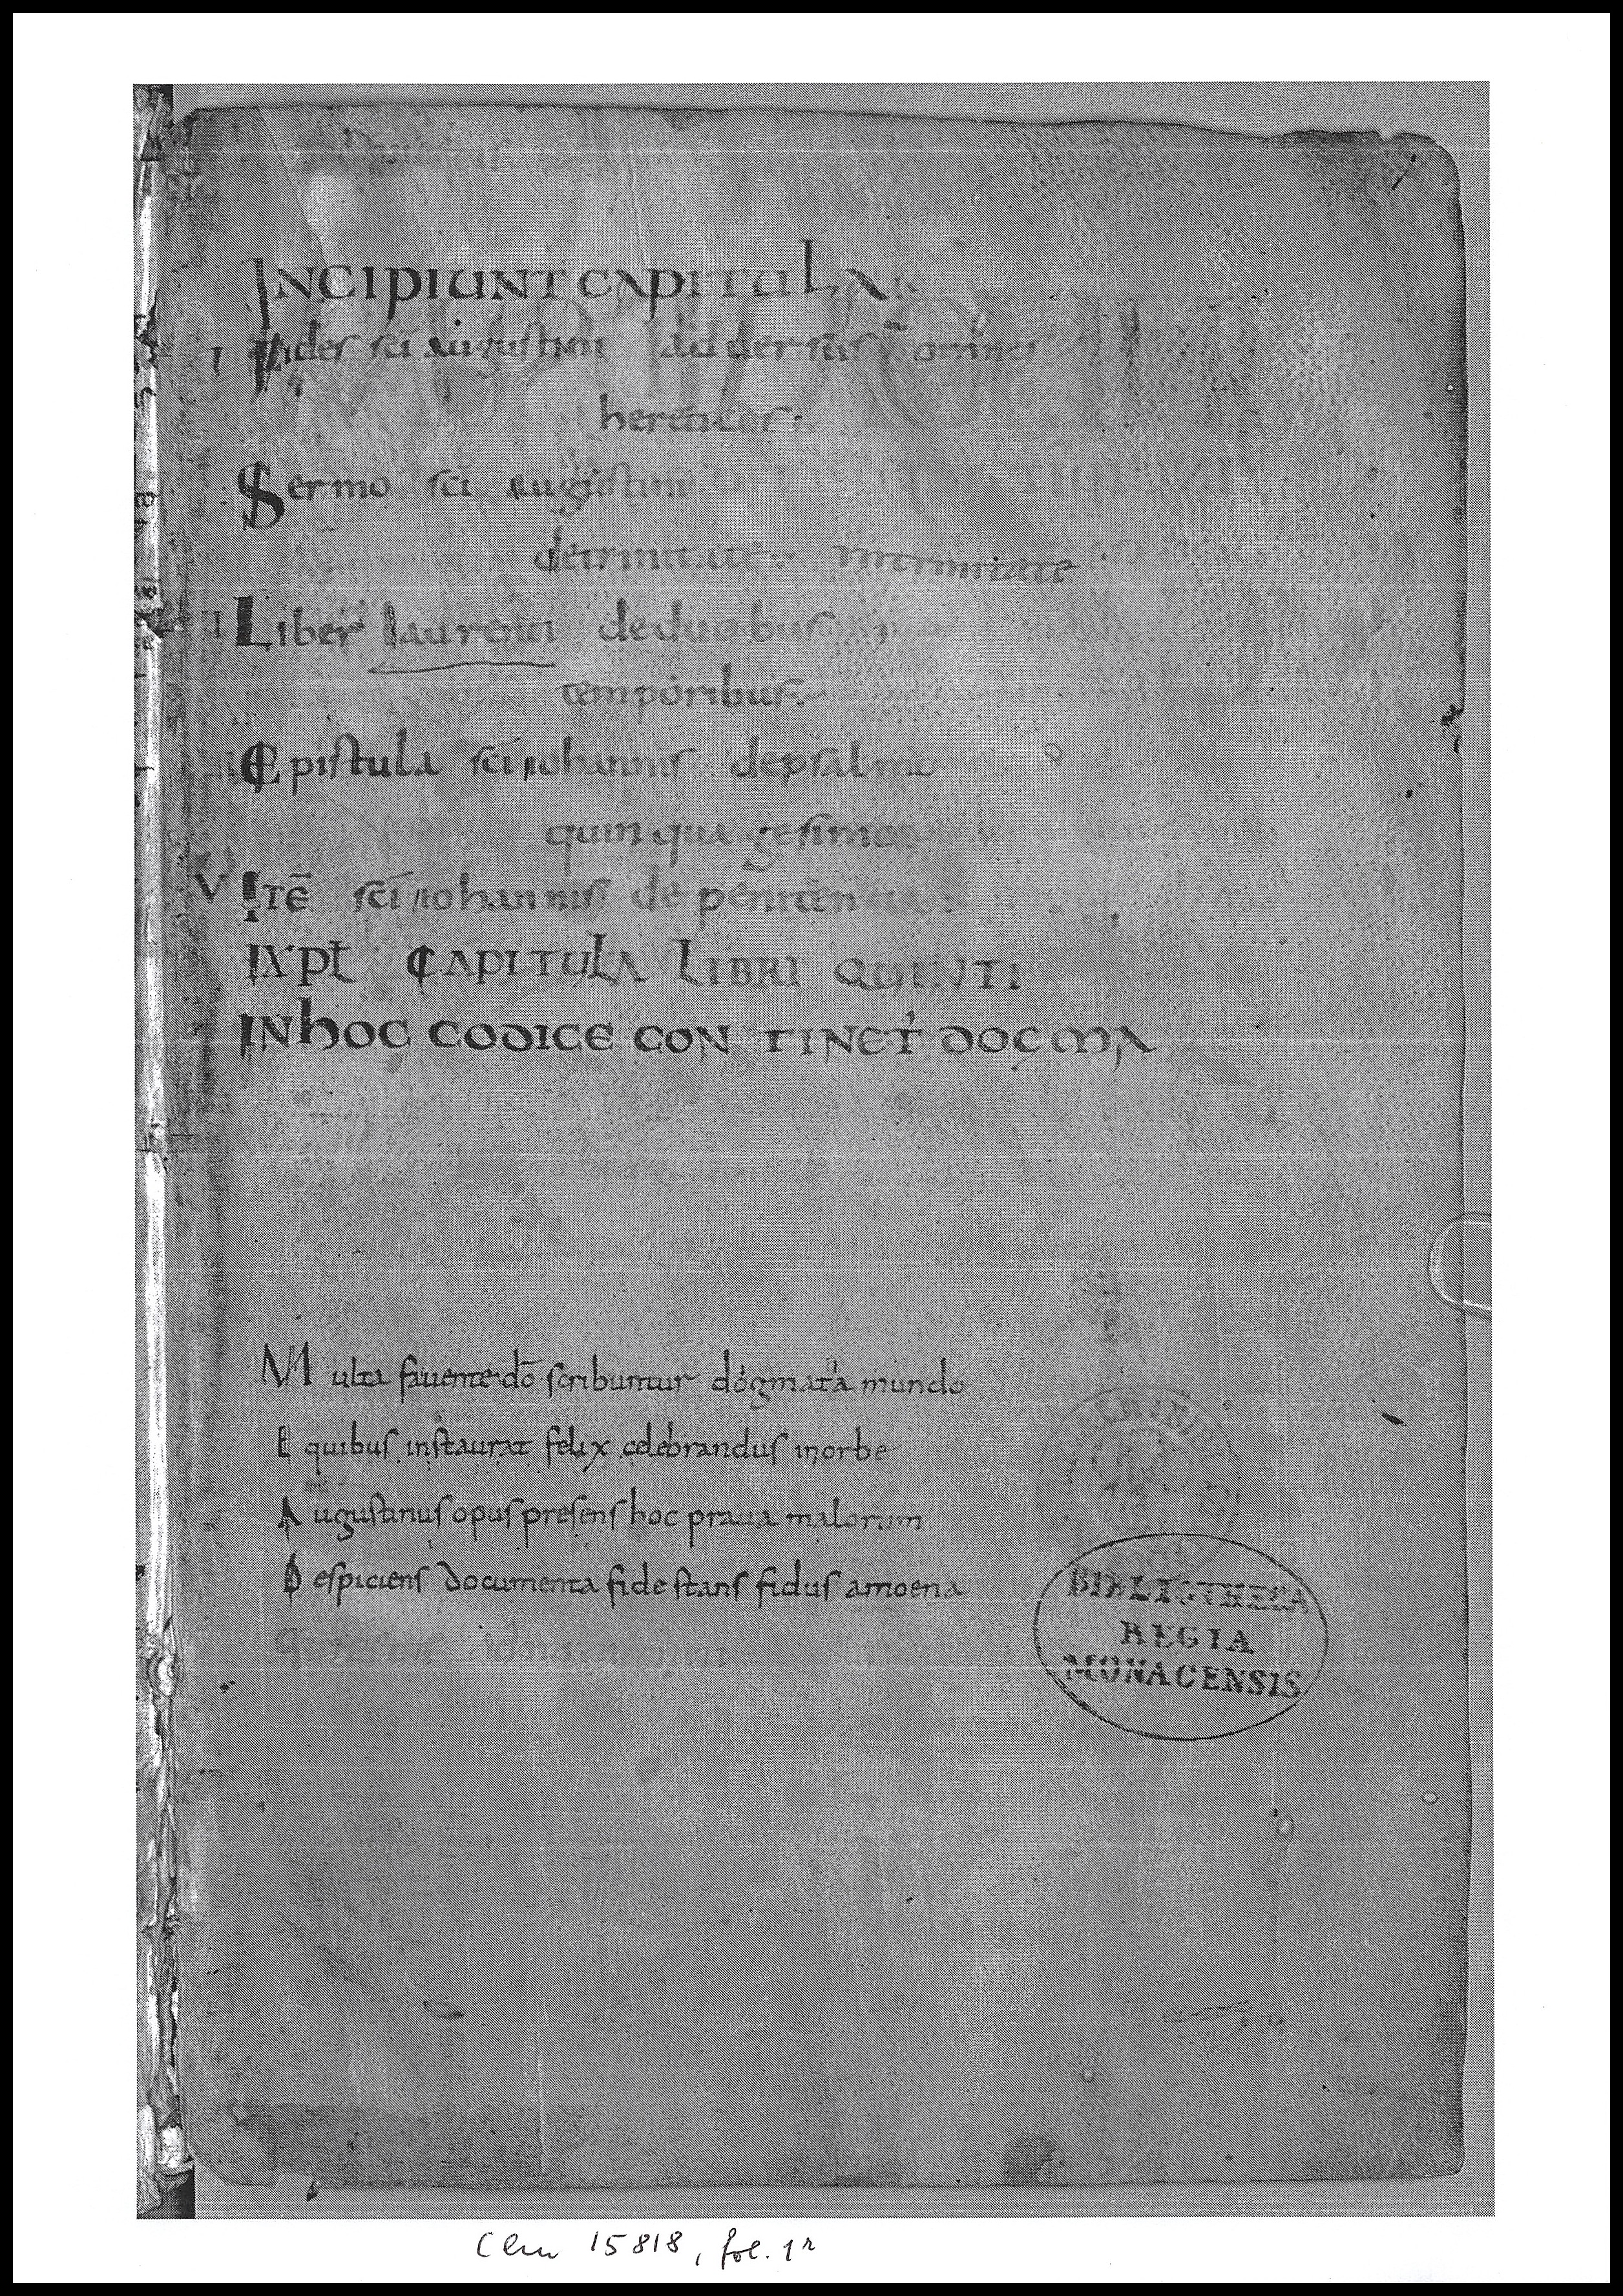 INCIPIUNT CAPITULA
I Fides sci augustini aduersus omnes
hereticos
Sermo sci augustini
detrinitate. intrinitate
Liber laurenti deduobus
temporibus.
Epistula sci iohannis depsalmo
quinquagesimo
V Itē sci iohannis de penitentia
EXPL CAPITULA LIBRI QUINTI
IN hOC CODICE CONTINET DOCMA
Multa fauente do scribuntur dogmata mundo
E quibus instaurat felix celebrandus inorbe
Augustinus opus presens hoc praua malorum
Despiciens documenta fide stans fidus amoena
BIBLIOTHECA
REGIA
MONACENSIS
Clm 15818, fol. 1r